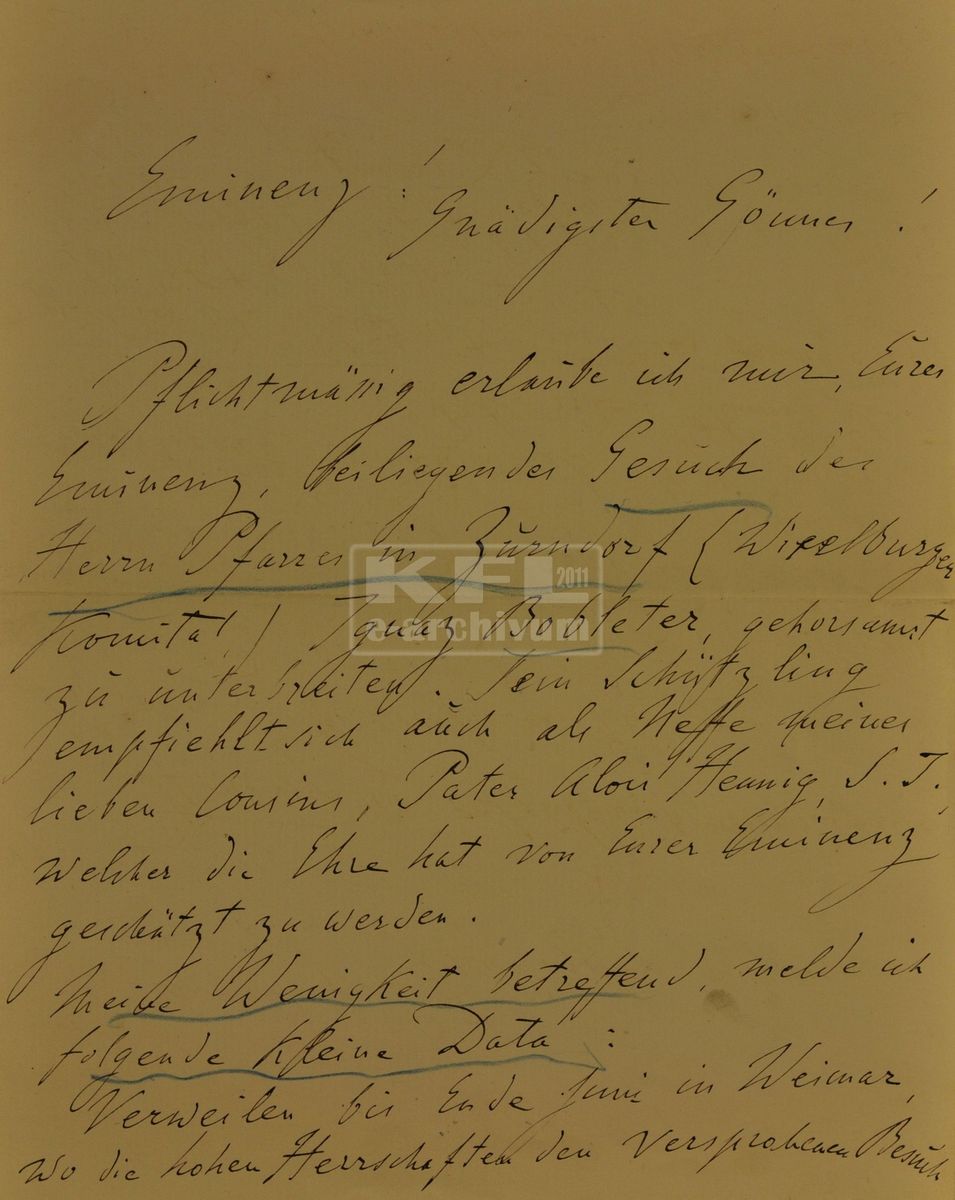 Eminenz!
Gnädigster Gönner!
Pflichtmässig erlaube ich mir, Eurer
Eminenz, beiliegendes Gesuch des
Herrn Pfarrer in Zurndorf (Wieselburger
Komitat) Ignaz Bobleter, gehorsamst
zu unterbreiten. Sein Schützling
empfiehlt sich auch als Neffe meines
lieben Cousins, Pater Alois Hennig, S. J.,
welcher die Ehre hat von Eurer Eminenz
geschätzt zu werden.
Meine Wenigkeit betreffend, melde ich
folgende kleine Data:
Verweilen bis Ende Juni in Weimar,
wo die hohen Herrschaften den versprochenen Besuch
KFL 2011
e-archivum